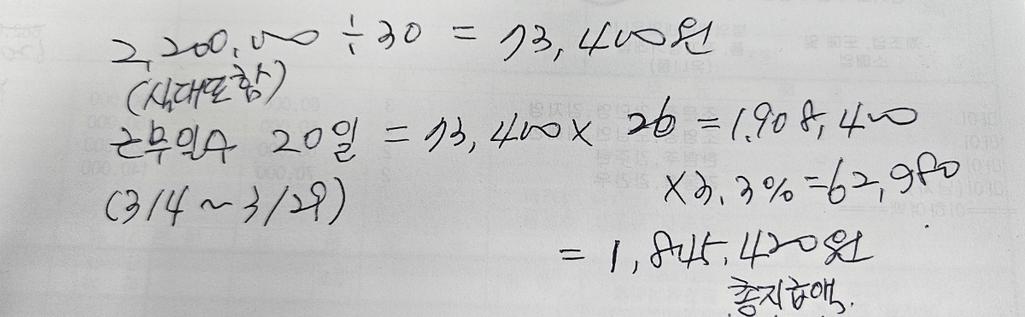 2,200,000 ÷ 30 = 73,400원
(식대포함)
근무일수 20일 = 73,400 × 26 = 1,908,400
(3/4 ~ 3/29)
×3.3% = 62,980
= 1,845,420원
총지급액.